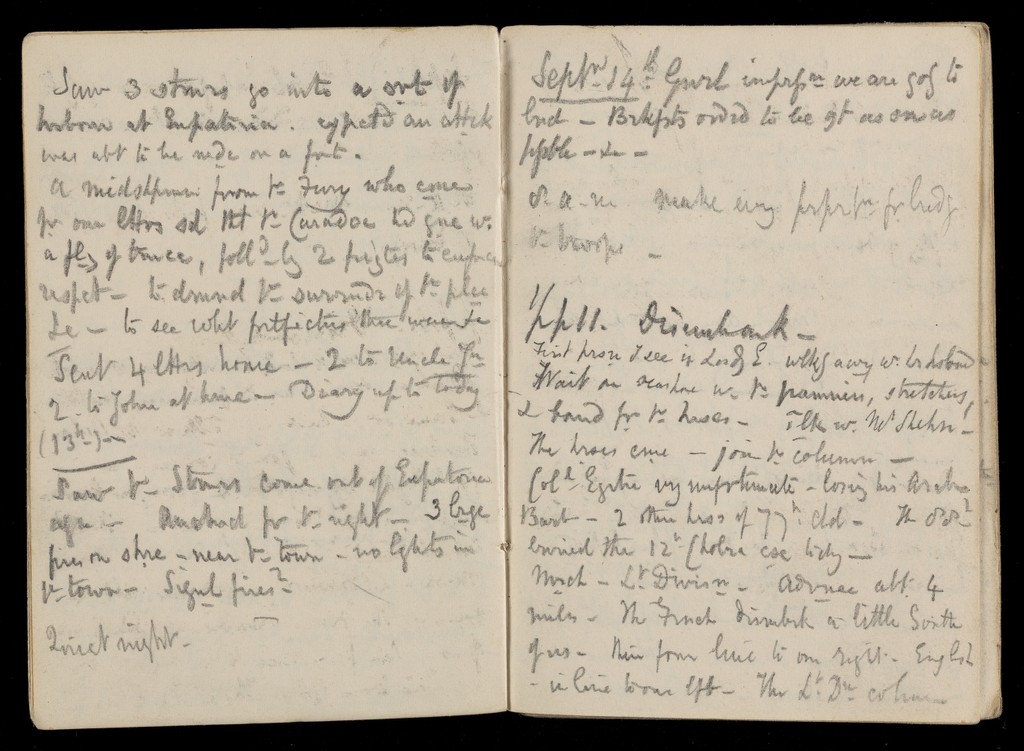 Saw 3 stmrs go into a sort of
harbour at Eupatoria. expectd an attck
was abt to be made on a fort.
A midshpman from ye Fury who came
fr our lttrs sd tht ye Caradoc hd gne w.
a flg of truce, folld by 2 frigtes to enforce
respet - to dmnd ye surrendr of ye place
&c - to see wht fortfictns thre were &c
Sent 4 lttrs home - 2 to Uncle
2 to John at home - Diary up to today
(13th) -
Saw ye Stmrs come out of Eupatoria
agn - Anchord fr ye night - 3 lrge
fires on shre - near ye town - no lghts in
ye town - Signl fires?
Quiet night -
Septr 14th Gnrl imprssn we are gog to
lnd - Brkfsts ordrd to be gt as soon as
pssble - &c -
8 a-m make evry prprtn fr lndg
ye troops -
½ p 11. Disembark -
First prson I see is Lord G. E. wlkg awy w.
Wait on seashore w. ye panniers, stretchers,
& band fr ye hrses - Tlk w. Mr
The hrses cme - join ye column -
Coll Egrtn vry unfortunate - losing his Arab
- 2 othr hrss of 77th dd - The 88th
buried the 12th Cholra cse tdy -
Mrch - Lt Divisn - advnce abt 4
miles - The French dismbrk a little South
of us - thn form line to our right - English
- in line to our lft - The Lt Dn column